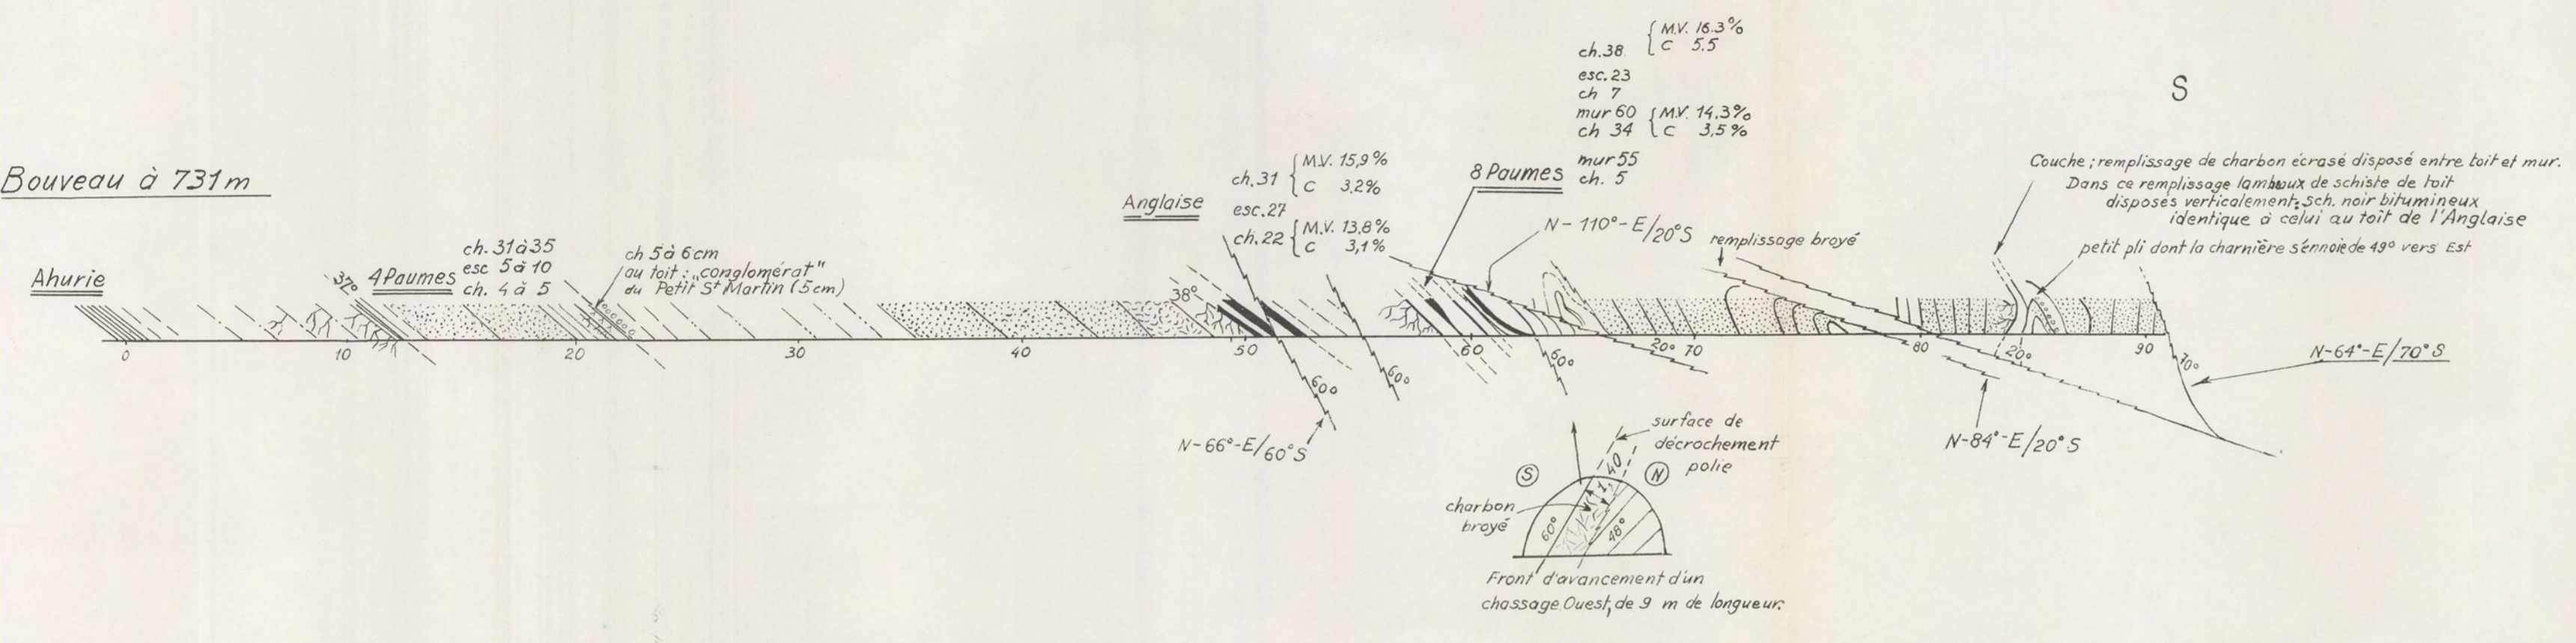 Bouveau à 731m
S
Ahurie
37°
4 Paumes
ch. 31 à 35
esc 5 à 10
ch. 4 à 5
ch 5 à 6cm
au toit : "conglomérat"
du Petit St Martin (5cm)
38°
Anglaise
ch. 31 { M.V. 15,9 %
C 3,2%
esc. 27
ch. 22 { M.V. 13,8 %
C 3,1 %
8 Paumes
ch. 38 { M.V. 16.3 %
C 5.5
esc. 23
ch 7
mur 60 { M.V. 14,3%
ch 34 C 3,5 %
mur 55
ch. 5
N - 110° - E/20°S
remplissage broyé
Couche ; remplissage de charbon écrasé disposé entre toit et mur.
Dans ce remplissage lambeaux de schiste de toit
disposés verticalement; Sch. noir bitumineux
identique à celui au toit de l'Anglaise
petit pli dont la charnière s'ennoie de 49° vers Est
0 10 20 30 40 50 60 70 80 90
60°
60°
60°
20°
20°
70°
N-66°-E/60°S
N-84°-E/20°S
N-64°-E/70°S
surface de
décrochement
polie
S
N
1,40
charbon
broyé
60°
48°
Front d'avancement d'un
chassage Ouest, de 9 m de longueur.